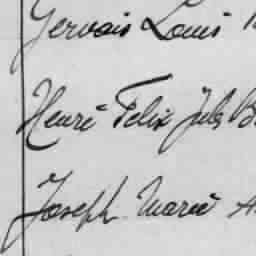 Gervais Louis
Henri Felix Jules
Joseph Marie